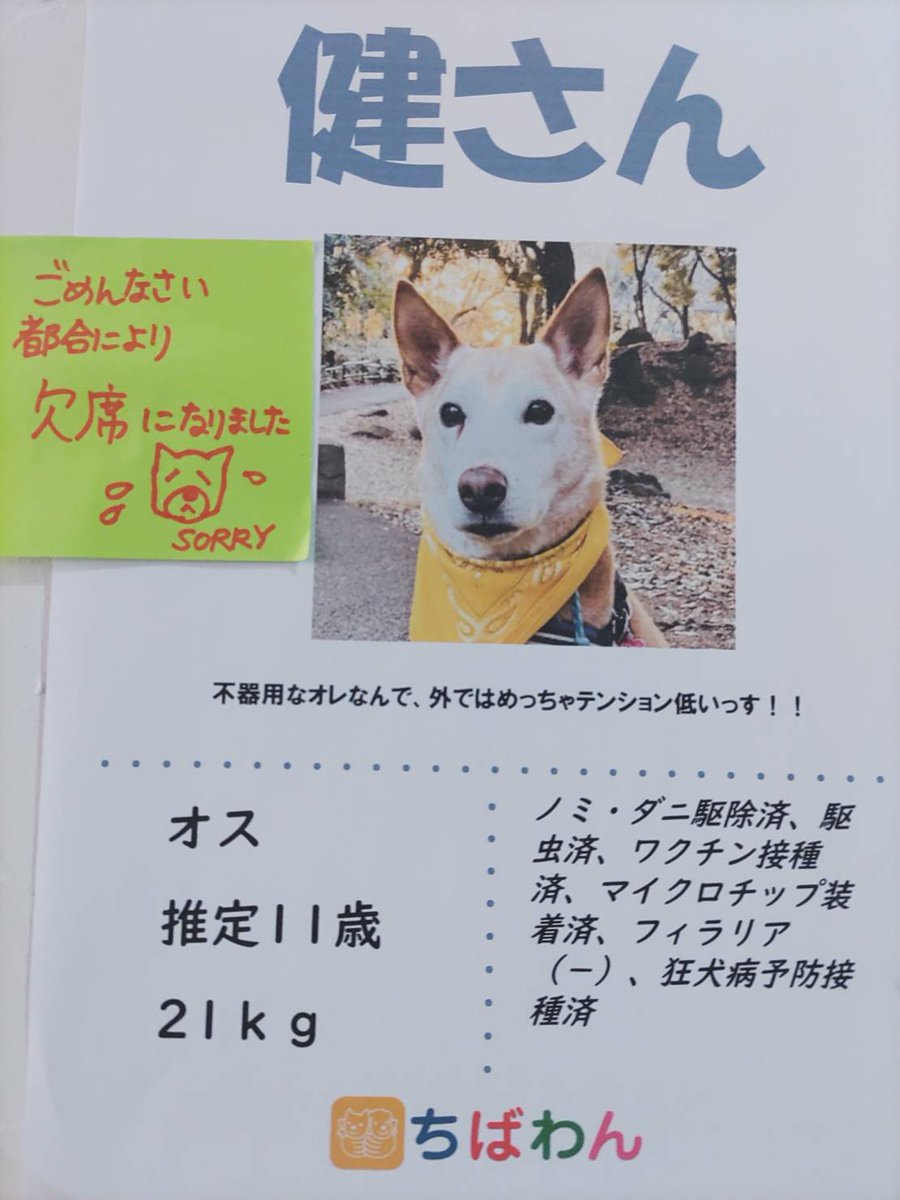 健さん
ごめんなさい
都合により
欠席になりました
SORRY
不器用なオレなんで、外ではめっちゃテンション低いっす！！
オス
推定11歳
21kg
ノミ・ダニ駆除済、駆
虫済、ワクチン接種
済、マイクロチップ装
着済、フィラリア
（－）、狂犬病予防接
種済
ちばわん